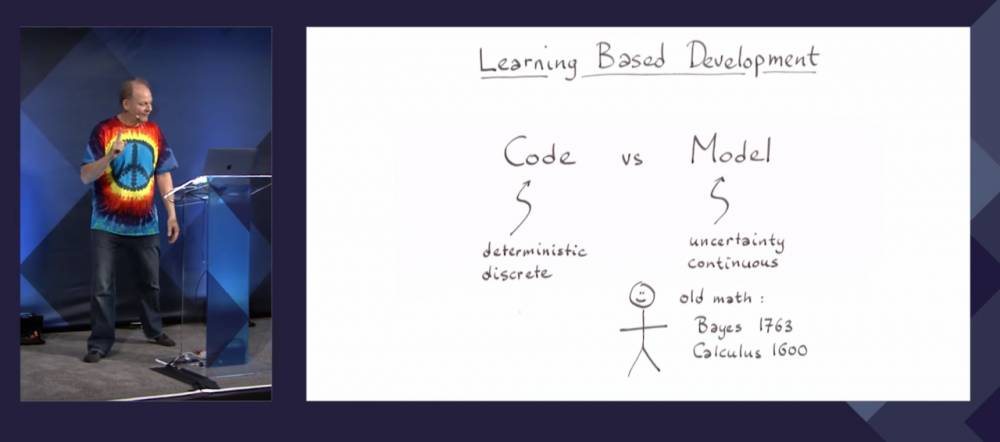 Learning Based Development
Code vs Model
deterministic
discrete
uncertainty
continuous
old math :
Bayes 1763
Calculus 1600